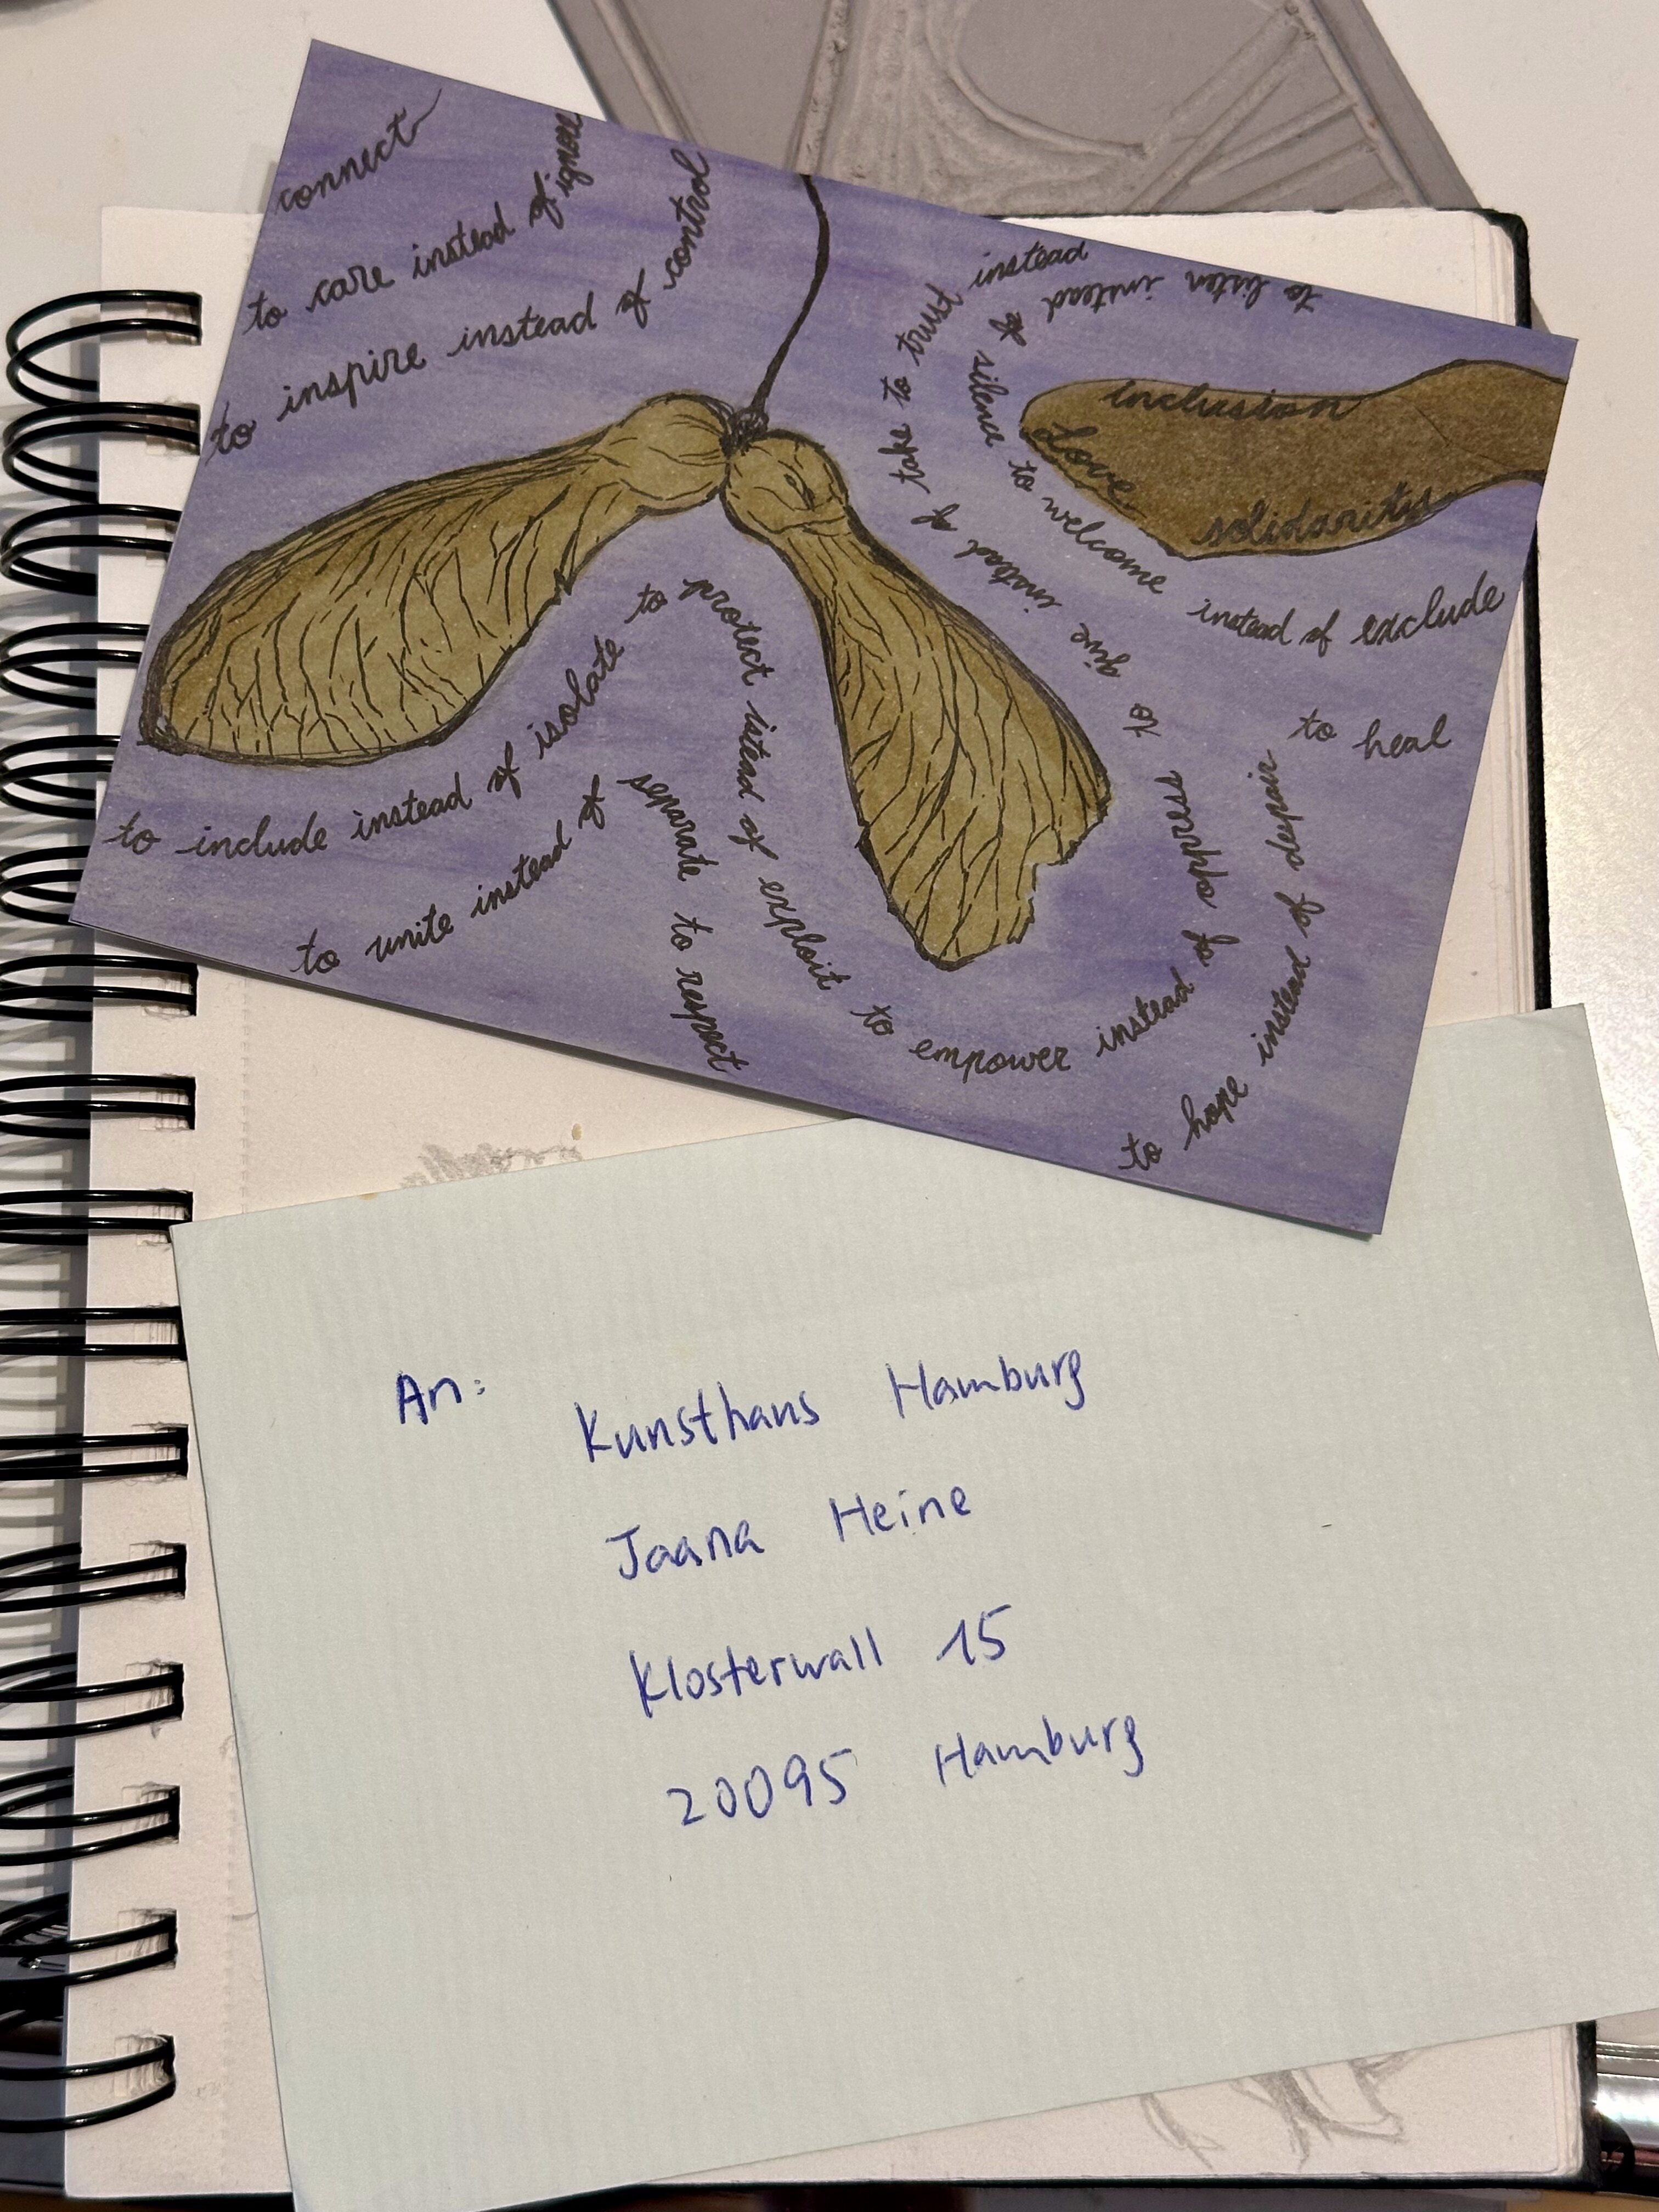 connect
to care instead of ignore
to inspire instead of control
to include instead of isolate to protect istead of exploit to empower instead of oppress to give instead of take to trust instead
to unite instead of separate to respect
to listen instead of silence to welcome instead of exclude
to hope instead of depair to heal
inclusion
love
solidarity
An:
Kunsthaus Hamburg
Jaana Heine
Klosterwall 15
20095 Hamburg